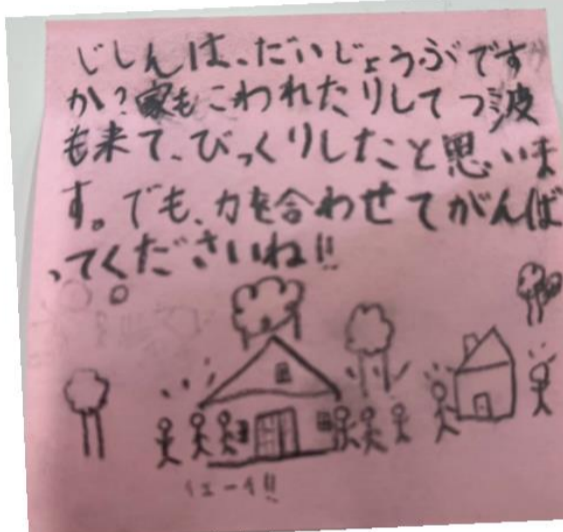 じしんは、だいじょうぶです
か?家もこわれたりしてつ波
も来て、びっくりしたと思いま
す。でも、力を合わせてがんば
ってくださいね!!
イエーイ!!